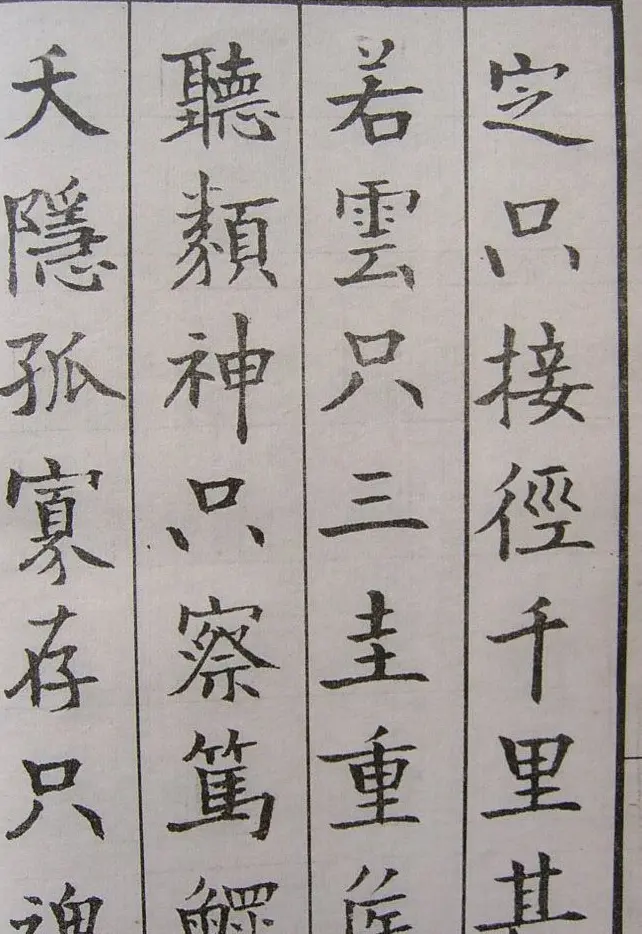 定只接徑千里
若雲只三圭重
聽類神只察篤
夭隱孤寡存只魂